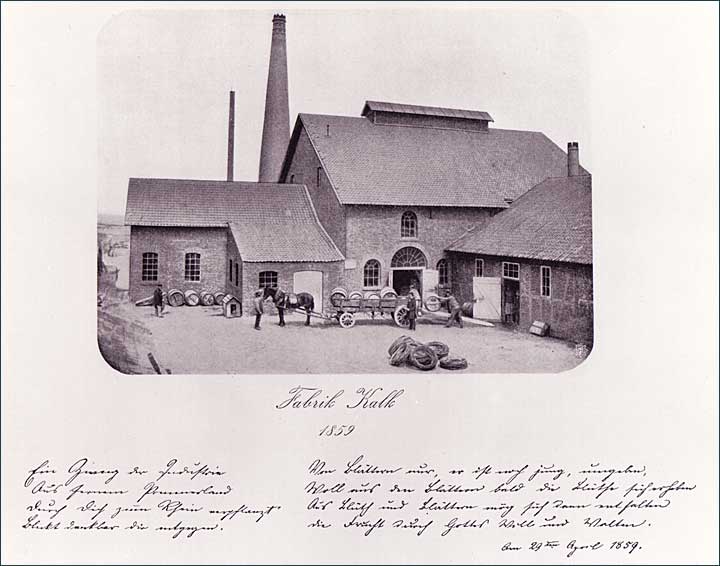 Fabrik Kalk
1859
Ein Zweig der Industrie
Aus fernem Pommerland
Durch Dich zum Rhein verpflanzt
Blickt dankbar dir entgegen.
Von Blättern nur, er ist noch jung, umgeben,
Woll aus den Blättern bald die Blüthe sich erheben
Aus Blüth und Blättern mög sich dann entfalten
die Frucht durch Gottes Woll und Walten.
Am 29ten April 1859.